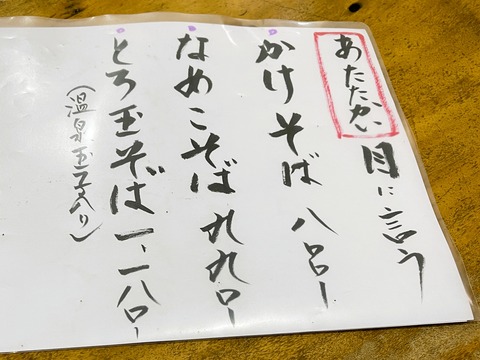 あたたかい
かけそば 八〇〇ー
なめこそば 九九〇ー
とろ玉そば 一、一八〇ー
(温泉玉子入り)